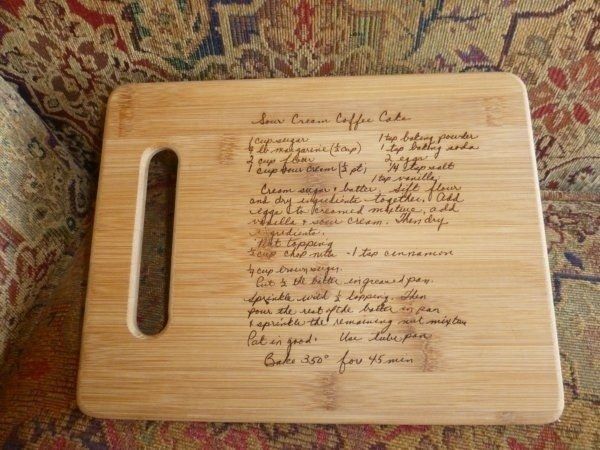 Sour Cream Coffee Cake
1 cup sugar 1 tsp baking powder
¼ lb margarine (½ cup) 1 tsp baking soda
2 cup flour 2 eggs
1 cup sour cream (½ pt) ¼ tsp salt
1 tsp vanilla
Cream sugar & butter, Sift flour
and dry ingredients together, Add
eggs to creamed mixture, add
vanilla & sour cream. Then dry
ingredients.
Nut topping
cup chop nuts - 1 tsp cinnamon
cup brown sugar.
Put ½ the batter in greased pan.
Sprinkle with ½ topping. Then
pour the rest of the batter in pan
& sprinkle the remaining nut mixture
Pat in good. Use tube pan
Bake 350° for 45 min